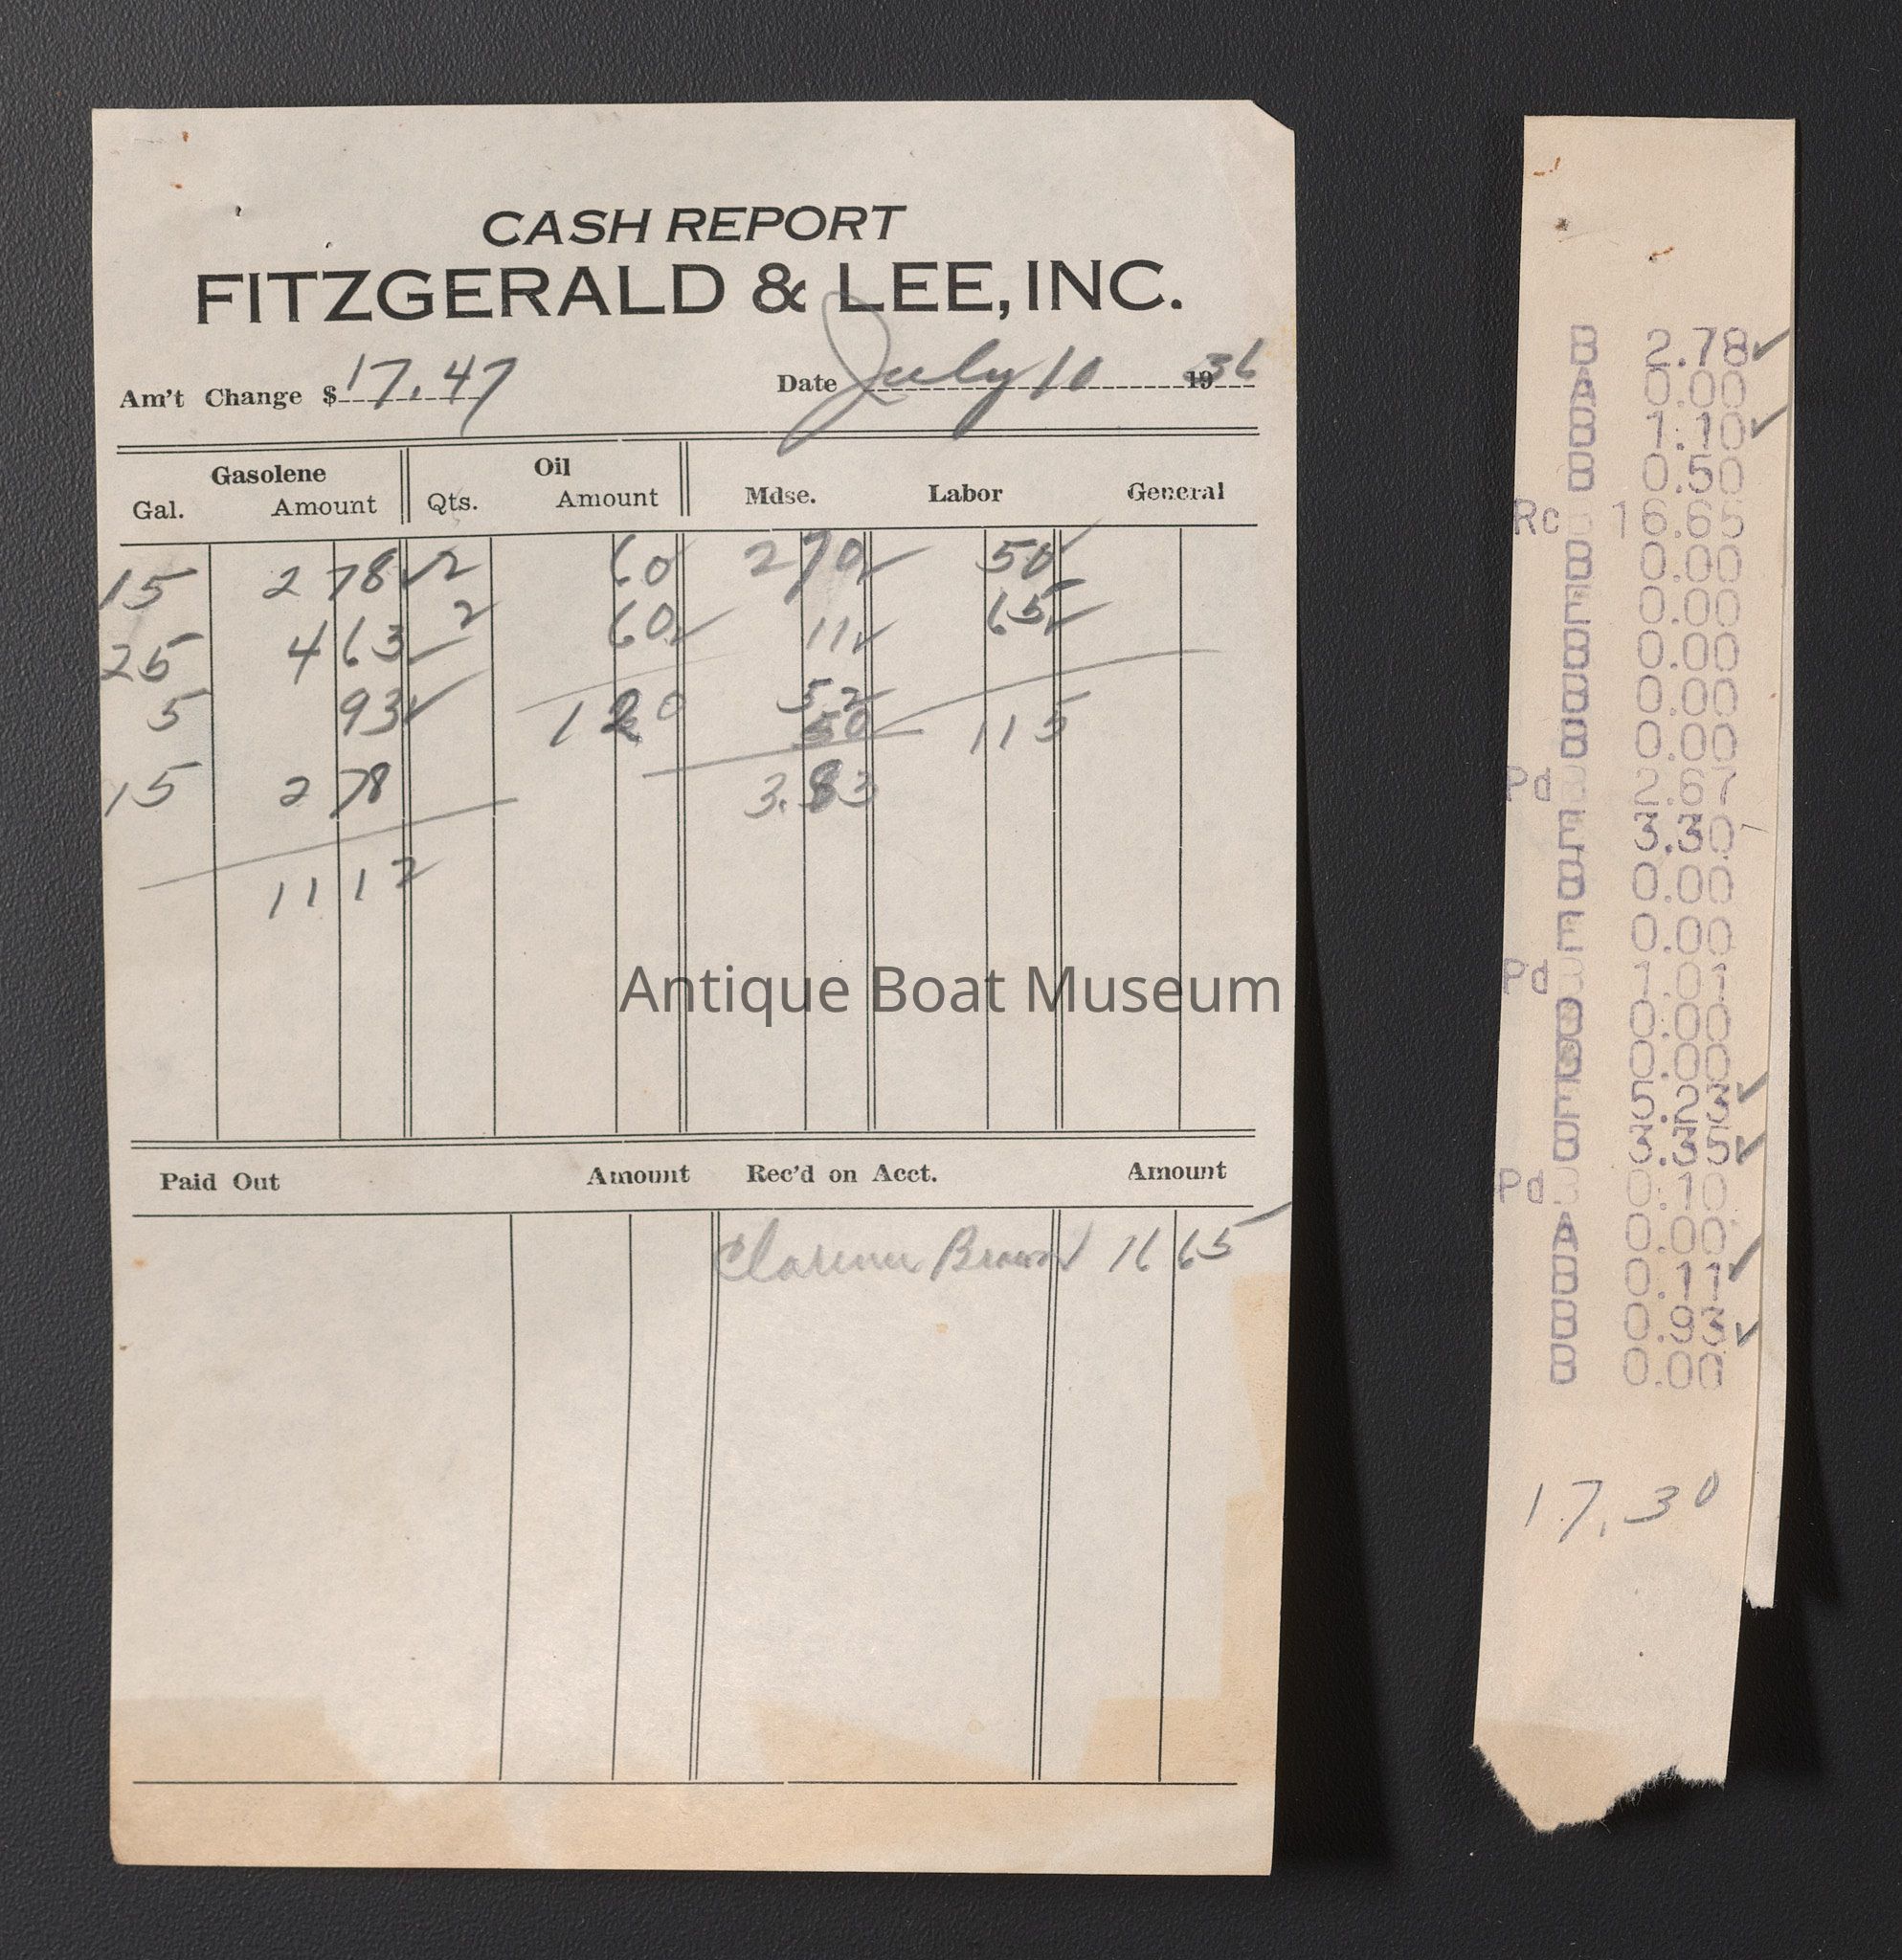 CASH REPORT
FITZGERALD & LEE, INC.
Am't Change $ 17.47 Date July 10 1936
Gasolene Oil
Gal. Amount Qts. Amount Mdse. Labor General
15 2 78 2 60 2 70 50
25 4 63 2 60 11 65
5 93 1 20 52 1 15
50
15 2 78 3.83
11 12
Antique Boat Museum
Paid Out Amount Rec'd on Acct. Amount
Clarence Brown 16 65
B 2.78
A 0.00
B 1.10
B 0.50
Rc 16.65
B 0.00
E 0.00
B 0.00
B 0.00
B 0.00
Pd 2.67
E 3.30
B 0.00
E 0.00
Pd 1.01
0.00
0.00
E 5.23
B 3.35
Pd 0.10
A 0.00
B 0.11
B 0.93
B 0.00
17.30